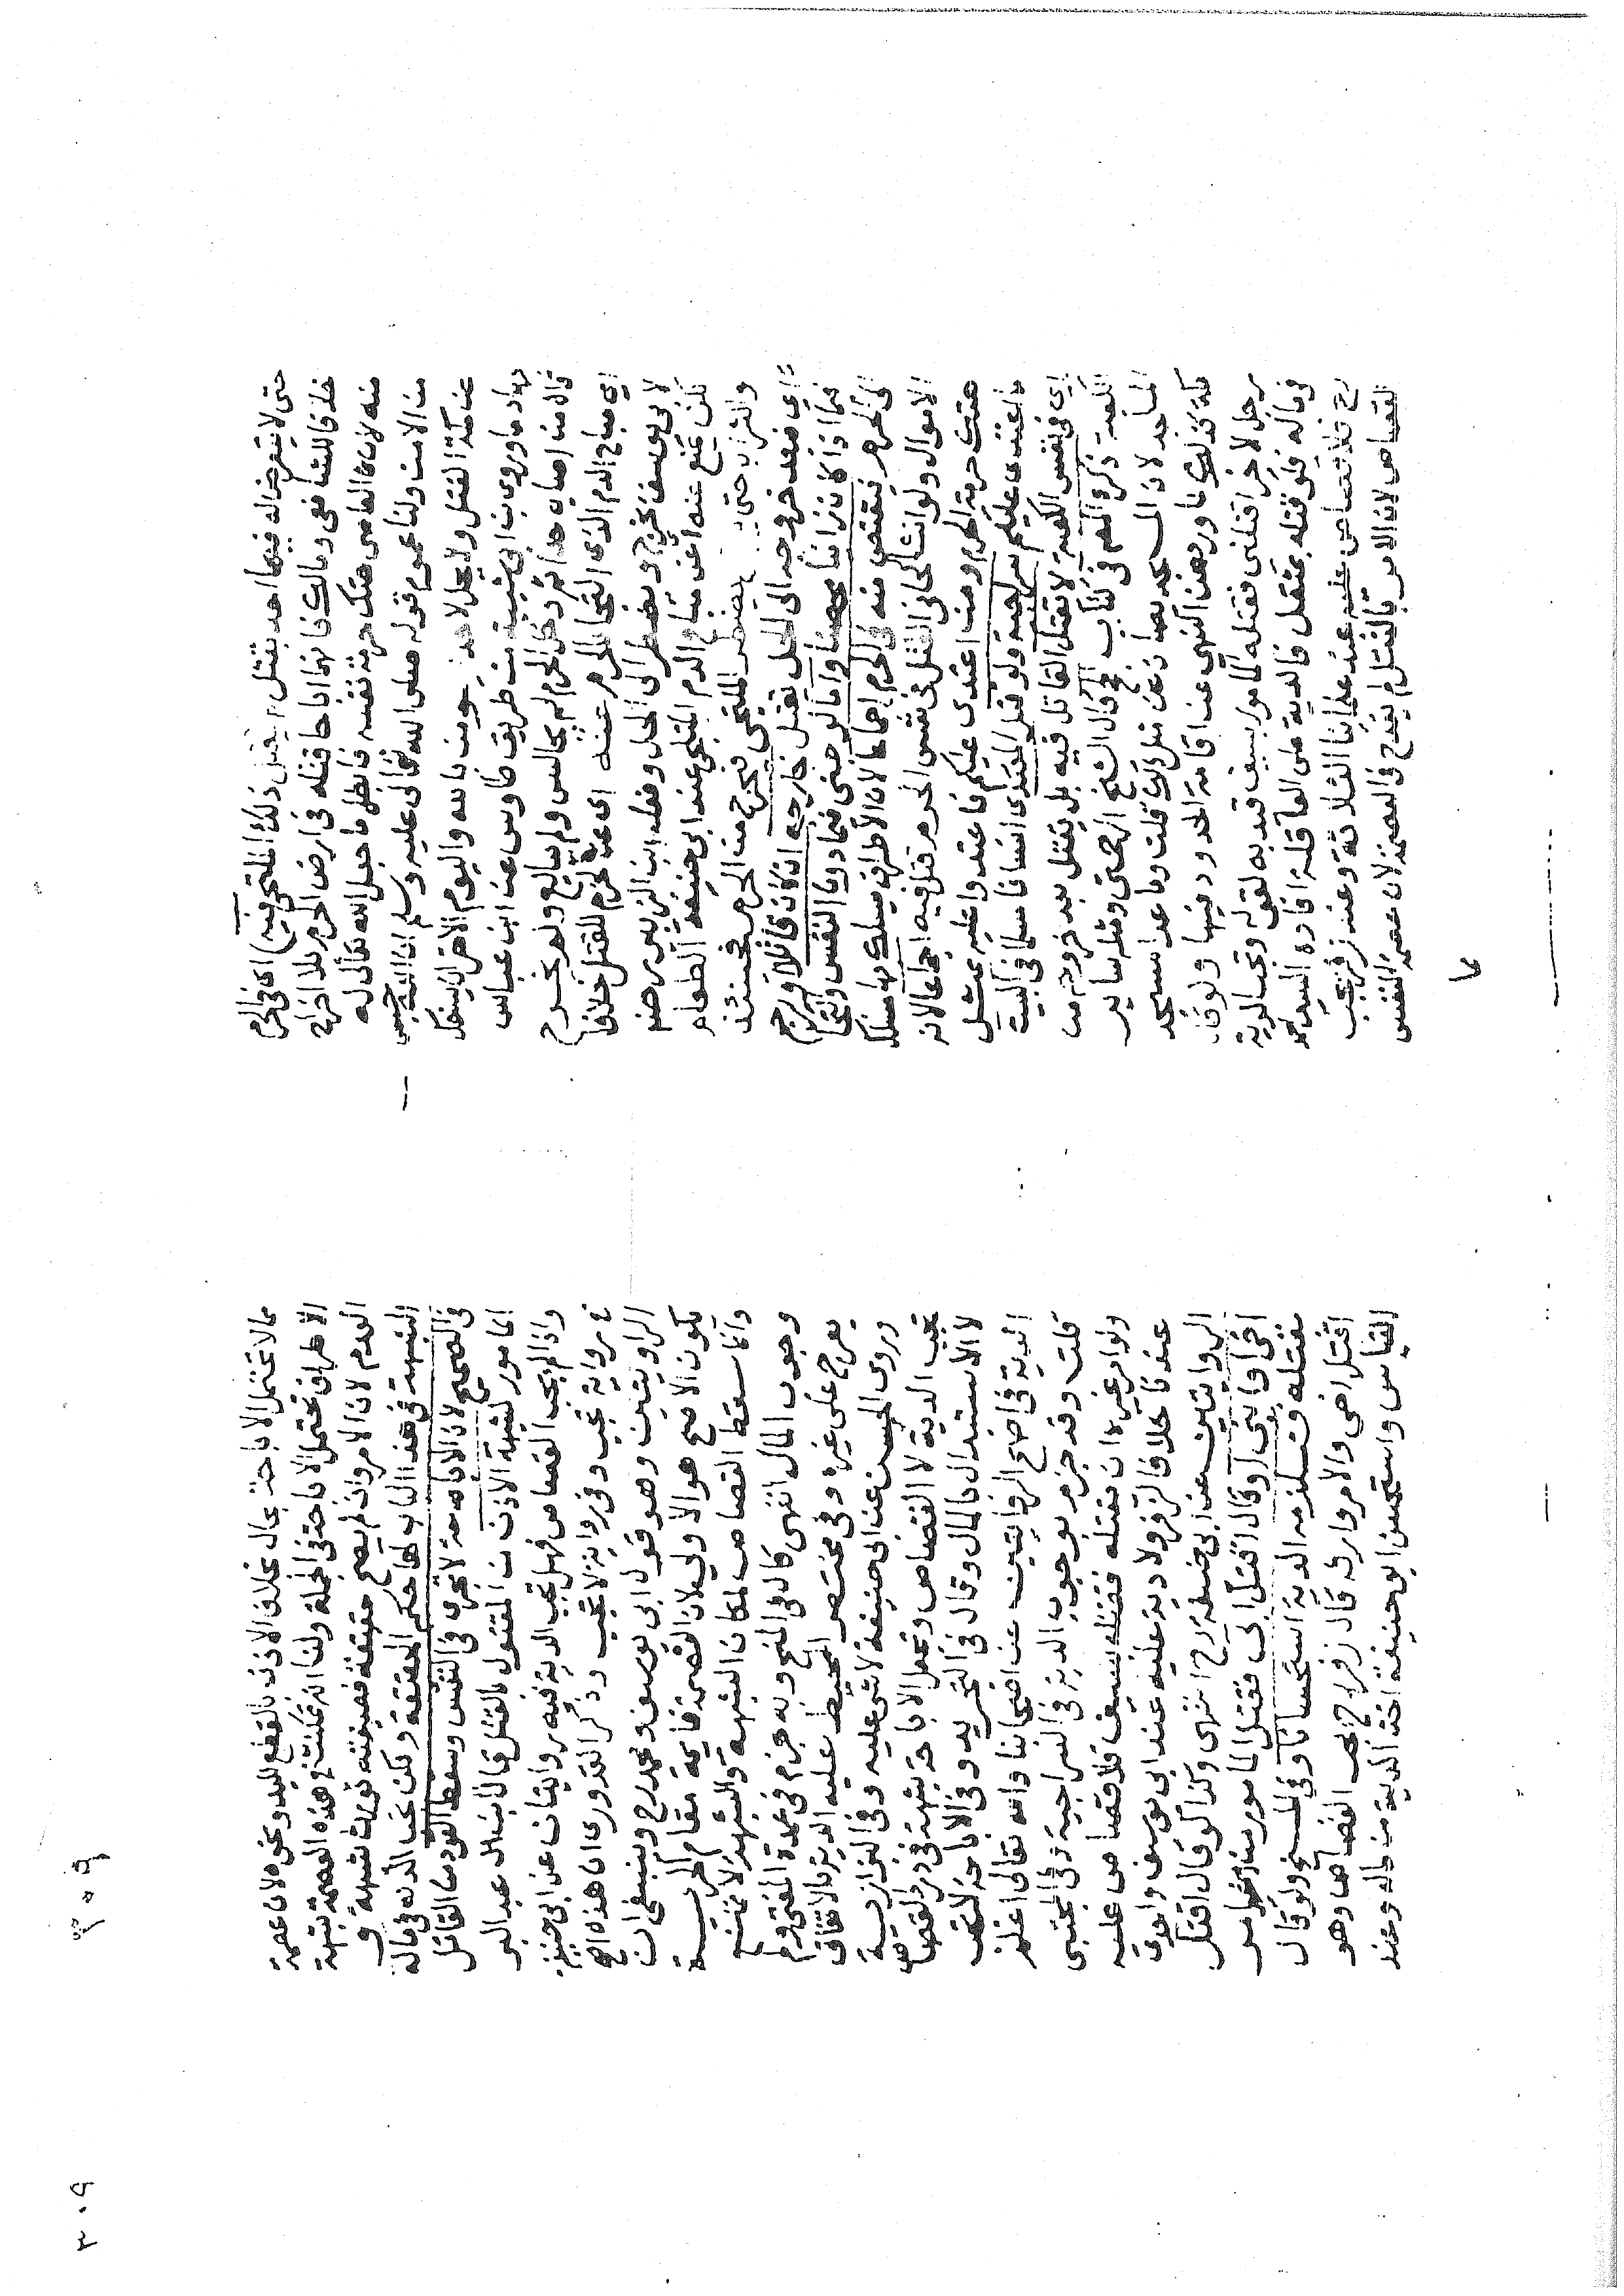 حتى لا يتعرض اله فيهما احد بقتل يقتل ذلك الملتجي فيه) اي في الحرم
خلافا للشافعي ومالك فانهما اباحا قتله في ارض الحرم بلا اخراج
منه لان العاصي هتك حرمة نفسه فابطل ما جعل الله تعالى له
من الامن ولنا عموم قوله صلى الله تعالى عليه وسلم ان الله حبس
عن مكة القتل ولا يحل لاحد يومن بالله واليوم الآخر ان يسفك
بها دما وروى بن ابي شيبة من طريق طاوس عن ابن عباس
قال من اصاب حدا ثم دخل الحرم لم يجالس ولم يبايع ولم يخرج)
اي مباح الدم الذي التجا للحرم عنه اي عن الحرم للقتل خلافا
لابي يوسف يخرج ويضطر الى الحل وفعله ابن الزبير رضه
لكن يمنع عنه اعني مباح الدم الملتجي عند ابي حنيفة الطعام
والشراب حتى يضطر الملتجي فيخرج من الحرم فحينئذ
اي فبعد خروجه الى الحل يقتل خارجه ان كان قاتلا او يرجم
فيما اذا كان زانيا محصنا واما لو جنى فيما دون النفس والتجا
الى الحرم فيقتص منه في الحرم اجماعا لان الاطراف يسلك بها مسلك
الاموال ولو انشا الجاني القتل في نفس الحرم قتل فيه اجماعا لانه
هتك حرمة الحرم ومن اعتدى عليكم فاعتدوا عليه بمثل
ما اعتدى عليكم سراجية ولو قتل المعتدي انسانا مسلما في البيت
اي في نفس الكعبة لا يقتل القاتل فيه بل يقتل بعد خروجه من
الكعبة ذكره المص في كتاب الحج قال الشيخ الرحمتي ومثله ساير
المساجد لان المسجد يصان عن مثل ذلك قلت وما عدا مسجد
مكة كذلك لما ورد من النهي عن اقامة الحدود فيها ولو قال
رجل لآخر اقتلني فقتله المامور بسيف قيد به لقوله وتجب الدية
في ماله فلو قتله بمثقل فالدية على العاقلة افاده السيد محمد
رح فلا قصاص عليه عند علمائنا الثلاثة وعند زفر يجب
القصاص لان الامر بالقتل لم يقدح في العصمة لان عصمة النفس
مما
٣٠٩
٣٠٩
مما لا تحتمل الاباحة بحال بخلاف الاذن بالقطع لليد ونحوه لان عصمة
الاطراف تحتمل الاباحة في الجملة ولنا انه تمكنت في هذه العصمة شبهة
العدم لان الامر وان لم يصح حقيقة فصيغته تورث شبهة و
الشبهة في هذا الباب لها حكم الحقيقة ولكن تجب الدية في ماله
في الصحيح لان الاباحة لا تجري في النفس وسقط القود عن القاتل
المامور لشبهة الاذن من المقتول بالقتل قال ابن عبد البر
واذا لم يجب القصاص فهل تجب الدية فيه روايتان عن ابي حنيفة
في رواية تجب وفي رواية لا تجب وذكر القدوري ان هذه اصح
الروايتين وهو قول ابي يوسف ومحمد رح وينبغي ان
يكون الاصح هو الاولى لان العصمة قايمة مقام الحرية
وانما سقط القصاص لمكان الشبهة والشبهة لا تمنع
وجوب المال انتهى كما في المنح وبه جزم في عمدة المفتي ولم
يعرج على غيره وفي مختصر المحيط عليه الدية بالاتفاق
وروى الحسن عن ابي حنيفة لا شي عليه وفي البزازية
تجب الدية لا القصاص وتجعل الاباحة شبهة في درء القصاص
لا الاستبدال بالمال وقال في التجريد وفي الاباحة لا تجب
الدية في اصح الروايتين عن اصحابنا والله تعالى اعلم
قلت وقد جزم بوجوب الدية في السراجية وفي المجتبى
ولو امر غيره ان يقتله فقتله بسيف فلا قصاص عليه
عندنا خلافا لزفر ولا دية عليه عند ابي يوسف واحدى
الروايتين عن ابي حنيفة رح انتهى وكذا لو قال اقتل
اخي او ابني او قال اقتل ابي فقتل المامور من امر
بقتله فتلزمه الدية استحسانا وفي المنح ولو قال
اقتل اخي والآمر وارثه قال زفر رح يجب القصاص وهو
القياس واستحسن ابو حنيفة اخذ الدية من ماله وعند